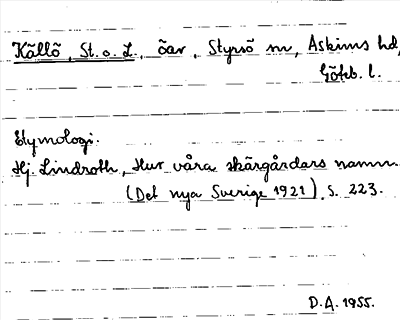 Källö, St. o. L., öar, Styrsö sn, Askims hd,
Göteb. l.
Etymologi:
Hj. Lindroth, Hur våra skärgårdars namn..
(Det nya Sverige 1921), s. 223.
D.A. 1955.